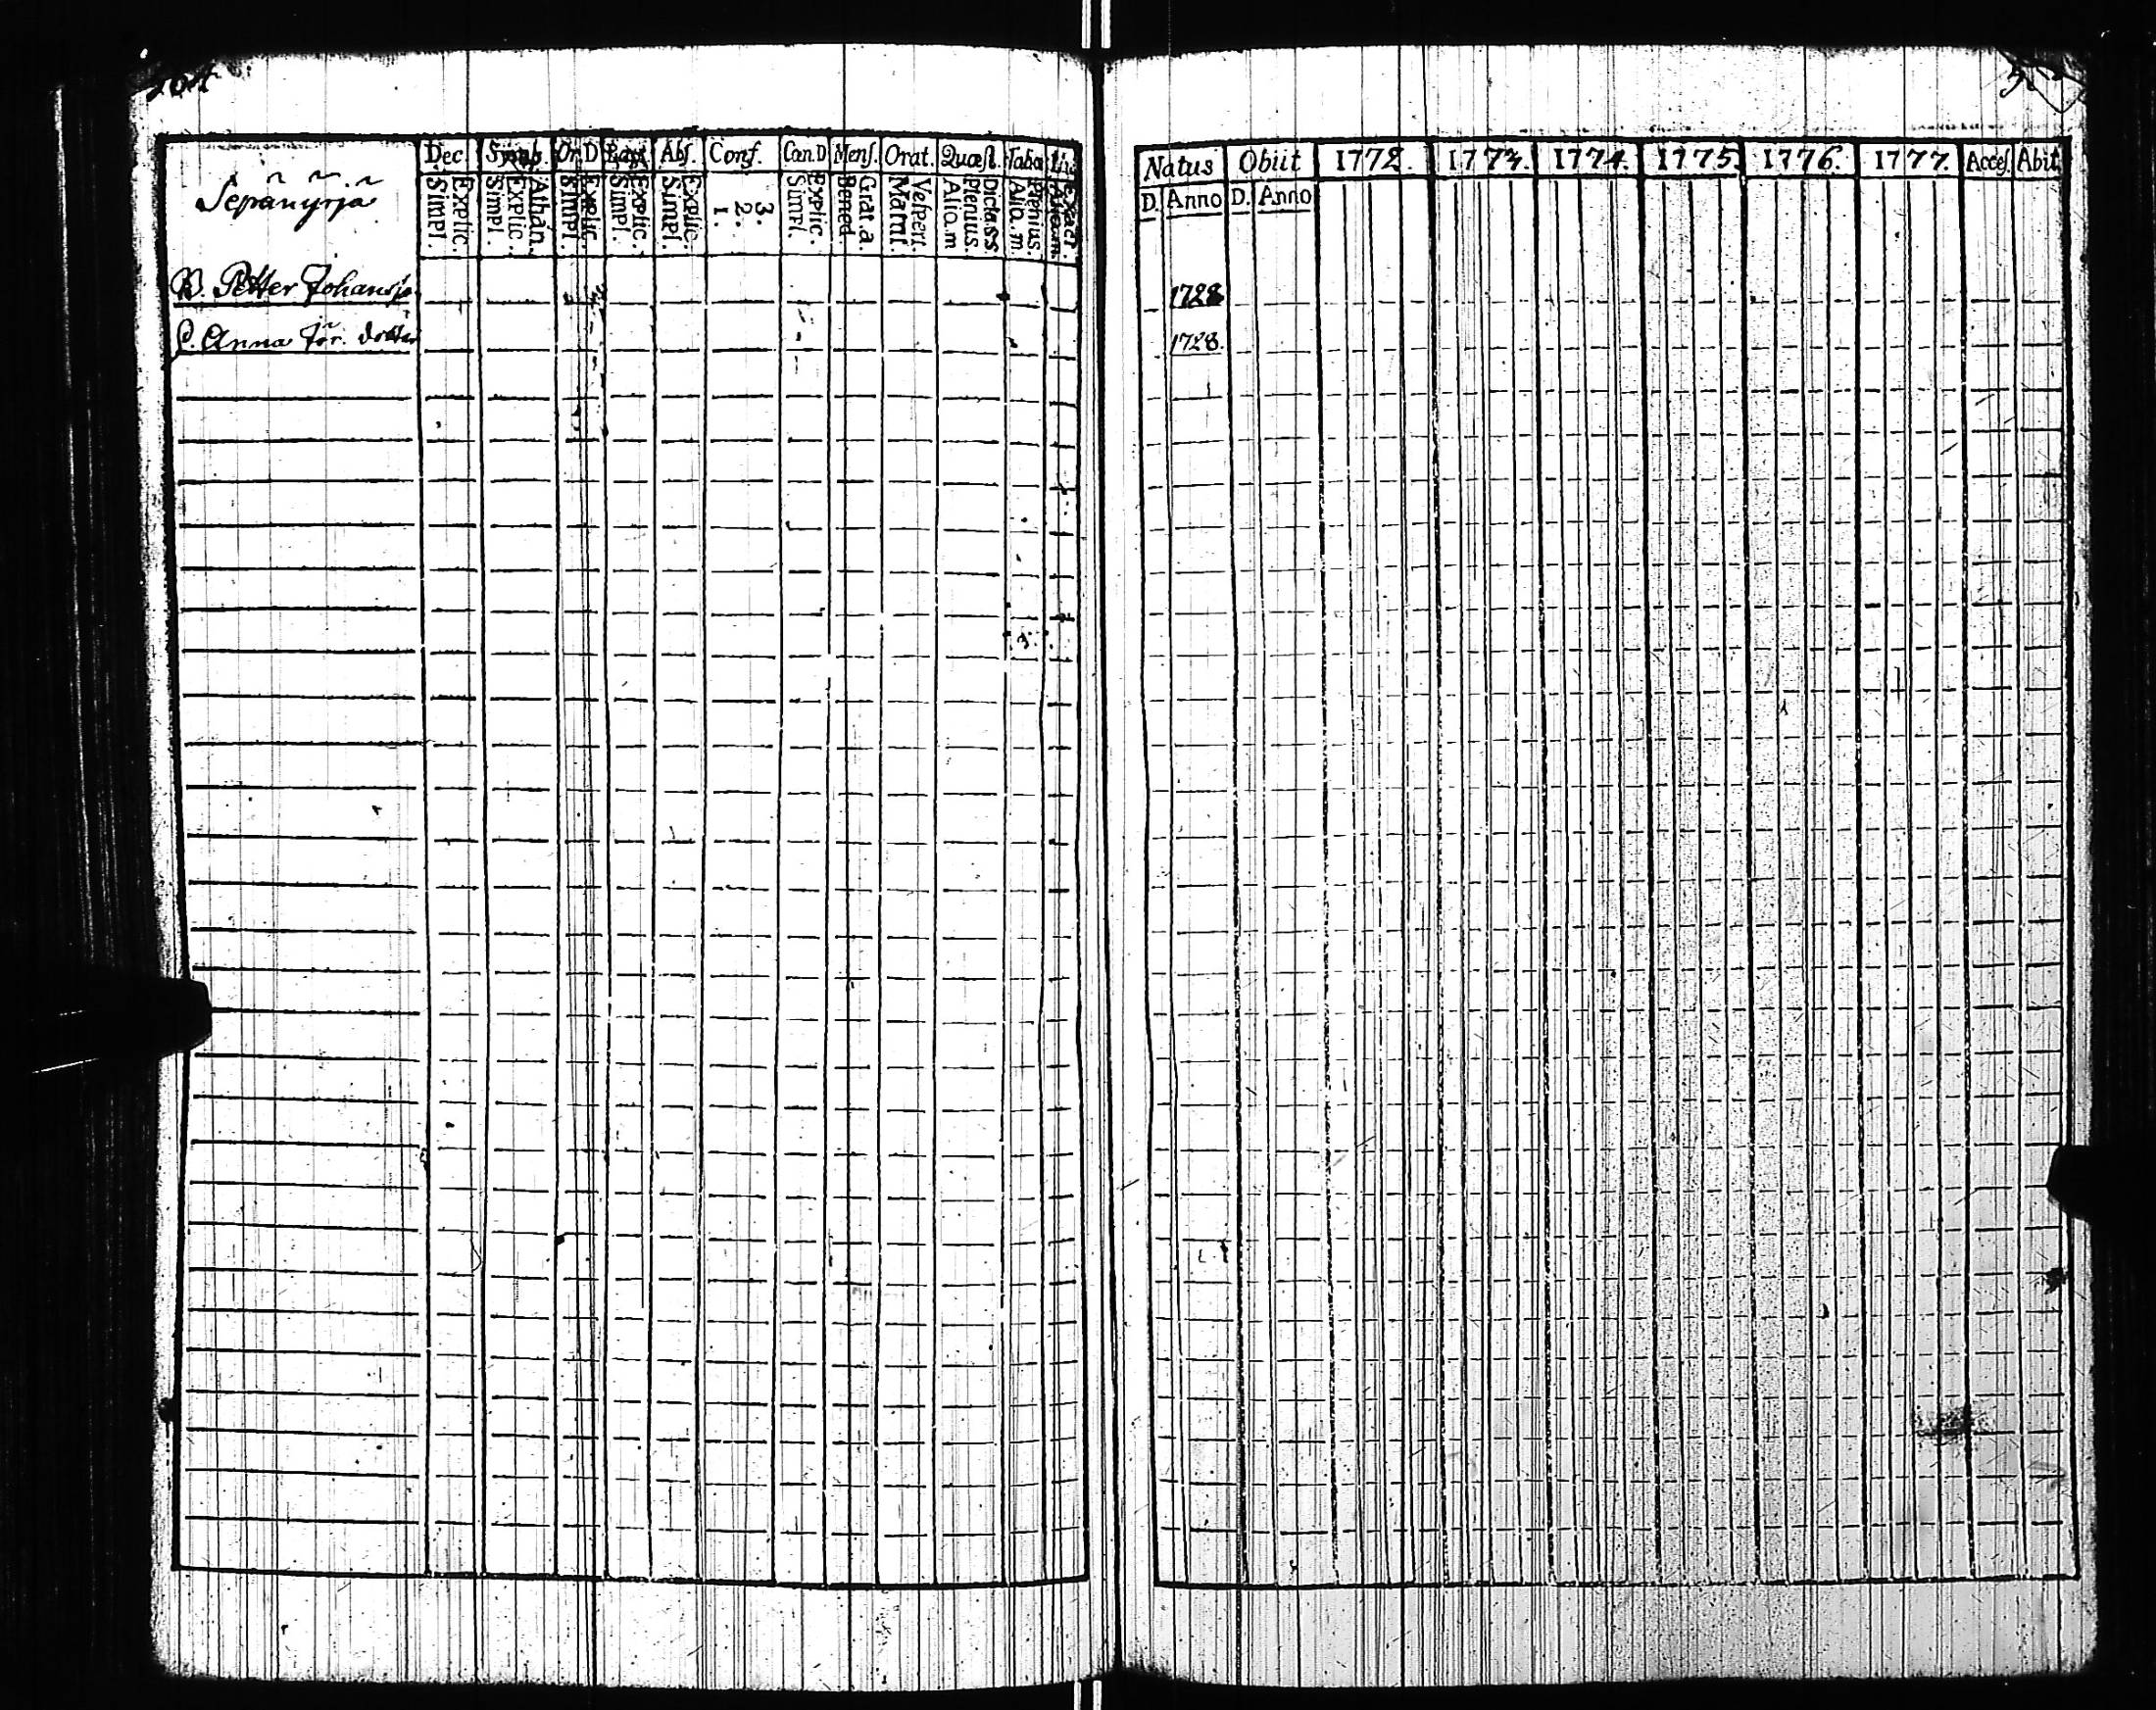 Dec. Symb. Or.D Bapt Abs. Conf. Can.D Mens. Orat. Quæst. Taba
Sepänyrjä
Explic. Simpl.
Athan. Explic. Simpl.
Explic. Simpl.
Explic. Simpl.
Explic. Simpl.
3. 2. 1.
Explic. Simpl.
Grat.a. Bened.
Vespert. Matut.
Dicta SS Plenius. Alio.m
Plenius. Alio.m
B. Petter Johansso
C. Anna Jör. dotter
Natus Obiit 1772. 1773. 1774. 1775. 1776. 1777. Acces. Abit.
D. Anno D. Anno
1728
1728.